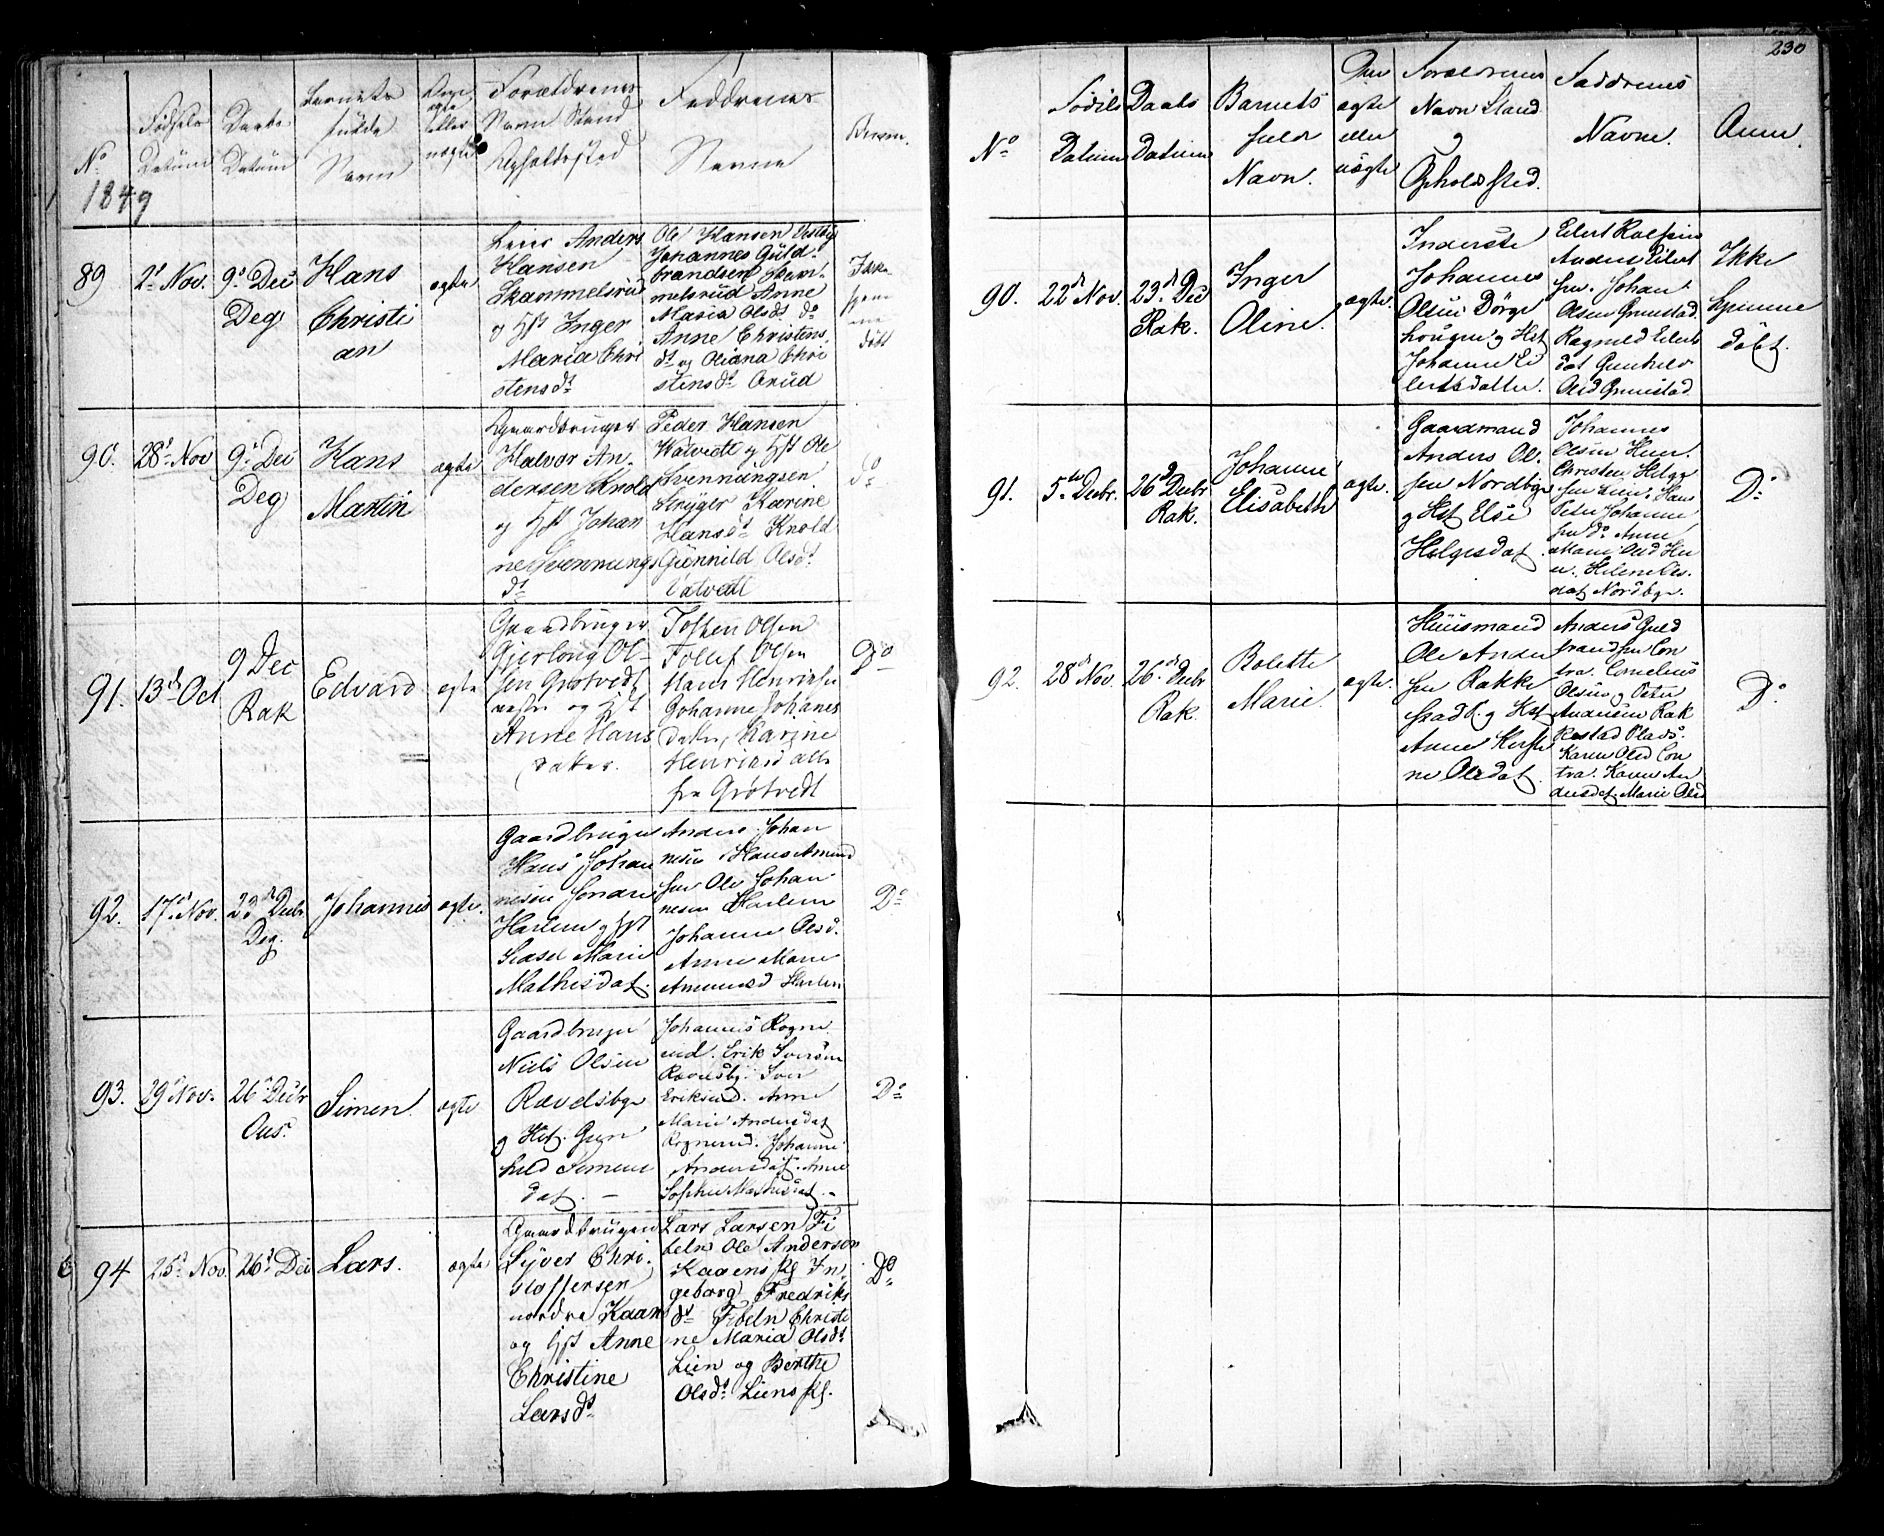 No
1849
Fødsels
Datum
Daabs
Datum
Barnets
fulde
Navn
ægte
eller
uægte
Forældrenes
Navn Stand
Opholdssted
Faddrenes
Navne
89
2d Nov.
9d Dec
Deg
Hans
Christi
an
ægte
Anders
Hansen
Skammelsrud
og Hst Inger
Maria Chri
stensdt
Ole Hansen
Johannes Guld-
brandsen Skam-
melsrud Anne
Maria Olsdt do
Anne Christens
dt og Oliana Chri
stensdt Ørud
Ikke
hjemme
døbt
90.
28d Nov
9d Dec
Deg
Hans
Martin
ægte
Gaardbruger
Halvor An-
dersen Knold
og Hst Johan
ne Svennungs
dt
Peder Hansen
Watvedt og Hst Ole
Svennungsen
Stryger Karine
Hansdt Knold
Gunnild Olsdt
Watvedt
do
91.
13de Oct
9 Dec
Rak
Edvard
ægte
Gaardbruger
Gjerlong Ol-
sen Grøtvedt
østre og Hst
Anne Hans
datter.
Olsen
Tollef Olsen
Hans Henriksen
Johanne Johanes
datter, Karine
Henriksd alle
fra Grøtvedt
Do
92.
17d Nov.
23de Decbr
Deg.
Johannes
ægte.
Gaardbruger
Hans Johan
nesen
Harlem og Hst
Marie
Mathisdat.
Anders Johan
nesen Hans Amund
sen Ole Johan
nesen Harlem
Johanne Olsd.
Anne Marie
Amundsd Harlem
Do
93.
29d Nov.
26d Decbr
Aas.
Simen.
ægte
Gaardbruger
Niels Olsen
Rævelsbye
og Hst. Gun
hild Simens
dat. -
Johannes Rogne
rud. Erik Syversen
Iver
Eriksrud. Anne
Marie Andersdat
Rognerud. Johanne
Andersdat. Anne
Sophie Mathisdat.
Do
94
25d Nov.
26d Dec
Lars.
ægte
Gaardbruger
Syver Chri-
stoffersen
nordre Kaan
og Hst Anne
Christine
Larsdt
Lars Larsen Fi
beln Ole Andersen
Kaaens Ej In-
geborg Fredriks
dt Fibeln Christi
ne Maria Olsdt
Lien og Berthe
Olsdt Liens Ej.
Do
230
No
Fødsels
Datum
Daabs
Datum
Barnets
fulde
Navn.
Om
ægte
eller
uægte
Forældrenes
Navn Stand
og
Opholdssted.
Faddrenes
Navne.
Anm.
90.
22d Nov.
23d Dec
Rak.
Inger
Oline.
ægte.
Inderste
Johannes
Olsen Dørge
hougen og Hst
Johanne Ei
lertsdatter.
Eilert
Anders Eilert
sen. Johan
Olsen Grimstad.
Ragnild Eilerts
dat Gunhild
Olsd Grimstad.
Ikke
hjemme
døbt.
91.
5te Decbr.
26d Decbr
Rak.
Johanne
Elisabeth
ægte.
Gaardmand
Anders Ol-
sen Nordbye
og Hst Else
Helgesdat
Johannes
Olsen Huer.
Christen Helge
sen Lien. Hans
Peter Johanne
sen do Anne
Marie Olsd Hu
er. Helene Ols-
dat Nordbye.
Do
92.
28d Nov.
26d Decbr
Rak.
Bolette
Marie.
ægte.
Huusmand
Ole Ander
sen Rakke
stad E. og Hst
Anne Kirsti
ne Olsdat.
Anders Guld
brandsen Con
tra. Cornelius
Olsen og Peter
Andersen Rak
kestad Plads.
Karen Olsd Con
tra. Karen An
dersdat. Marie Olsd
Do